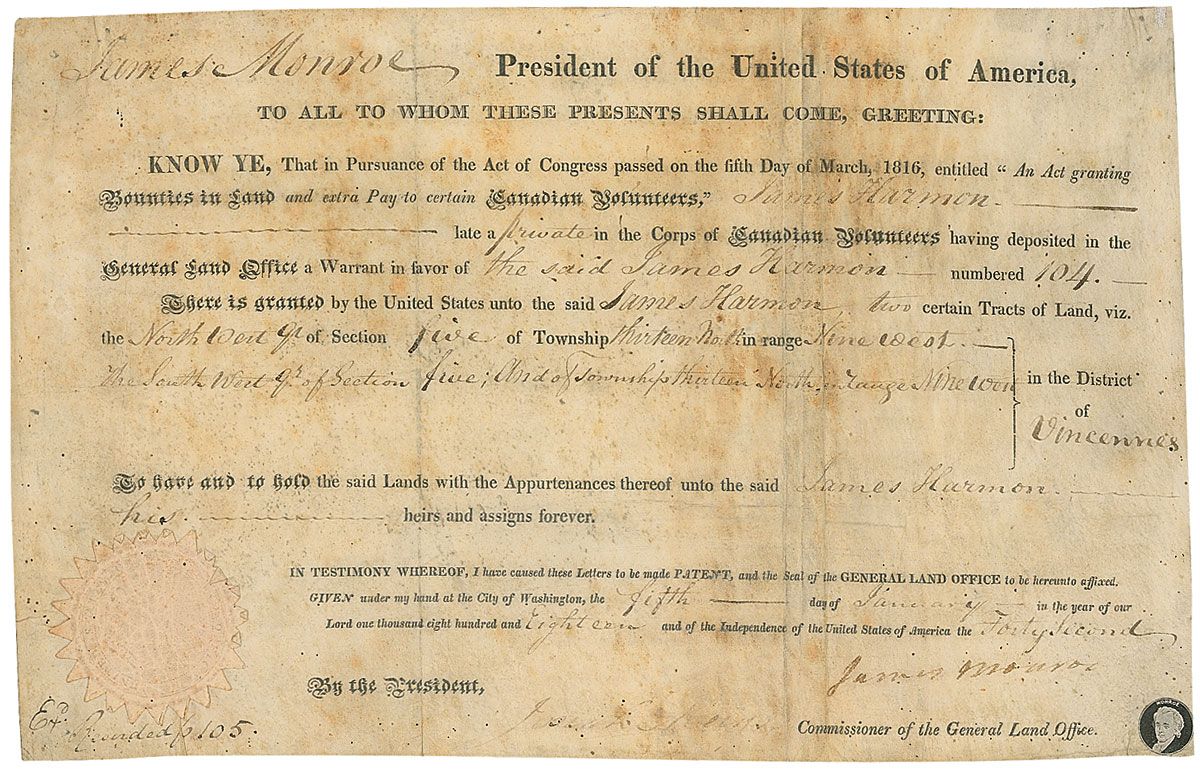 James Monroe President of the United States of America,
TO ALL TO WHOM THESE PRESENTS SHALL COME, GREETING:
KNOW YE, That in Pursuance of the Act of Congress passed on the fifth Day of March, 1816, entitled “ An Act granting
Bounties in Land and extra Pay to certain Canadian Volunteers,” James Harmon
late a private in the Corps of Canadian Volunteers having deposited in the
General Land Office a Warrant in favor of the said James Harmon numbered 104.
There is granted by the United States unto the said James Harmon, two certain Tracts of Land, viz.
the North West qr of Section five of Township thirteen North in range Nine west
The South West qr of Section five; And of Township thirteen North, in range Nine west in the District
of
Vincennes
To have and to hold the said Lands with the Appurtenances thereof unto the said James Harmon
his heirs and assigns forever.
IN TESTIMONY WHEREOF, I have caused these Letters to be made PATENT, and the Seal of the GENERAL LAND OFFICE to be hereunto affixed.
GIVEN under my hand at the City of Washington, the fifth day of January in the year of our
Lord one thousand eight hundred and Eighteen and of the Independence of the United States of America the Forty Second
James Monroe
By the President,
Commissioner of the General Land Office.
Recorded p 105.
MONROE